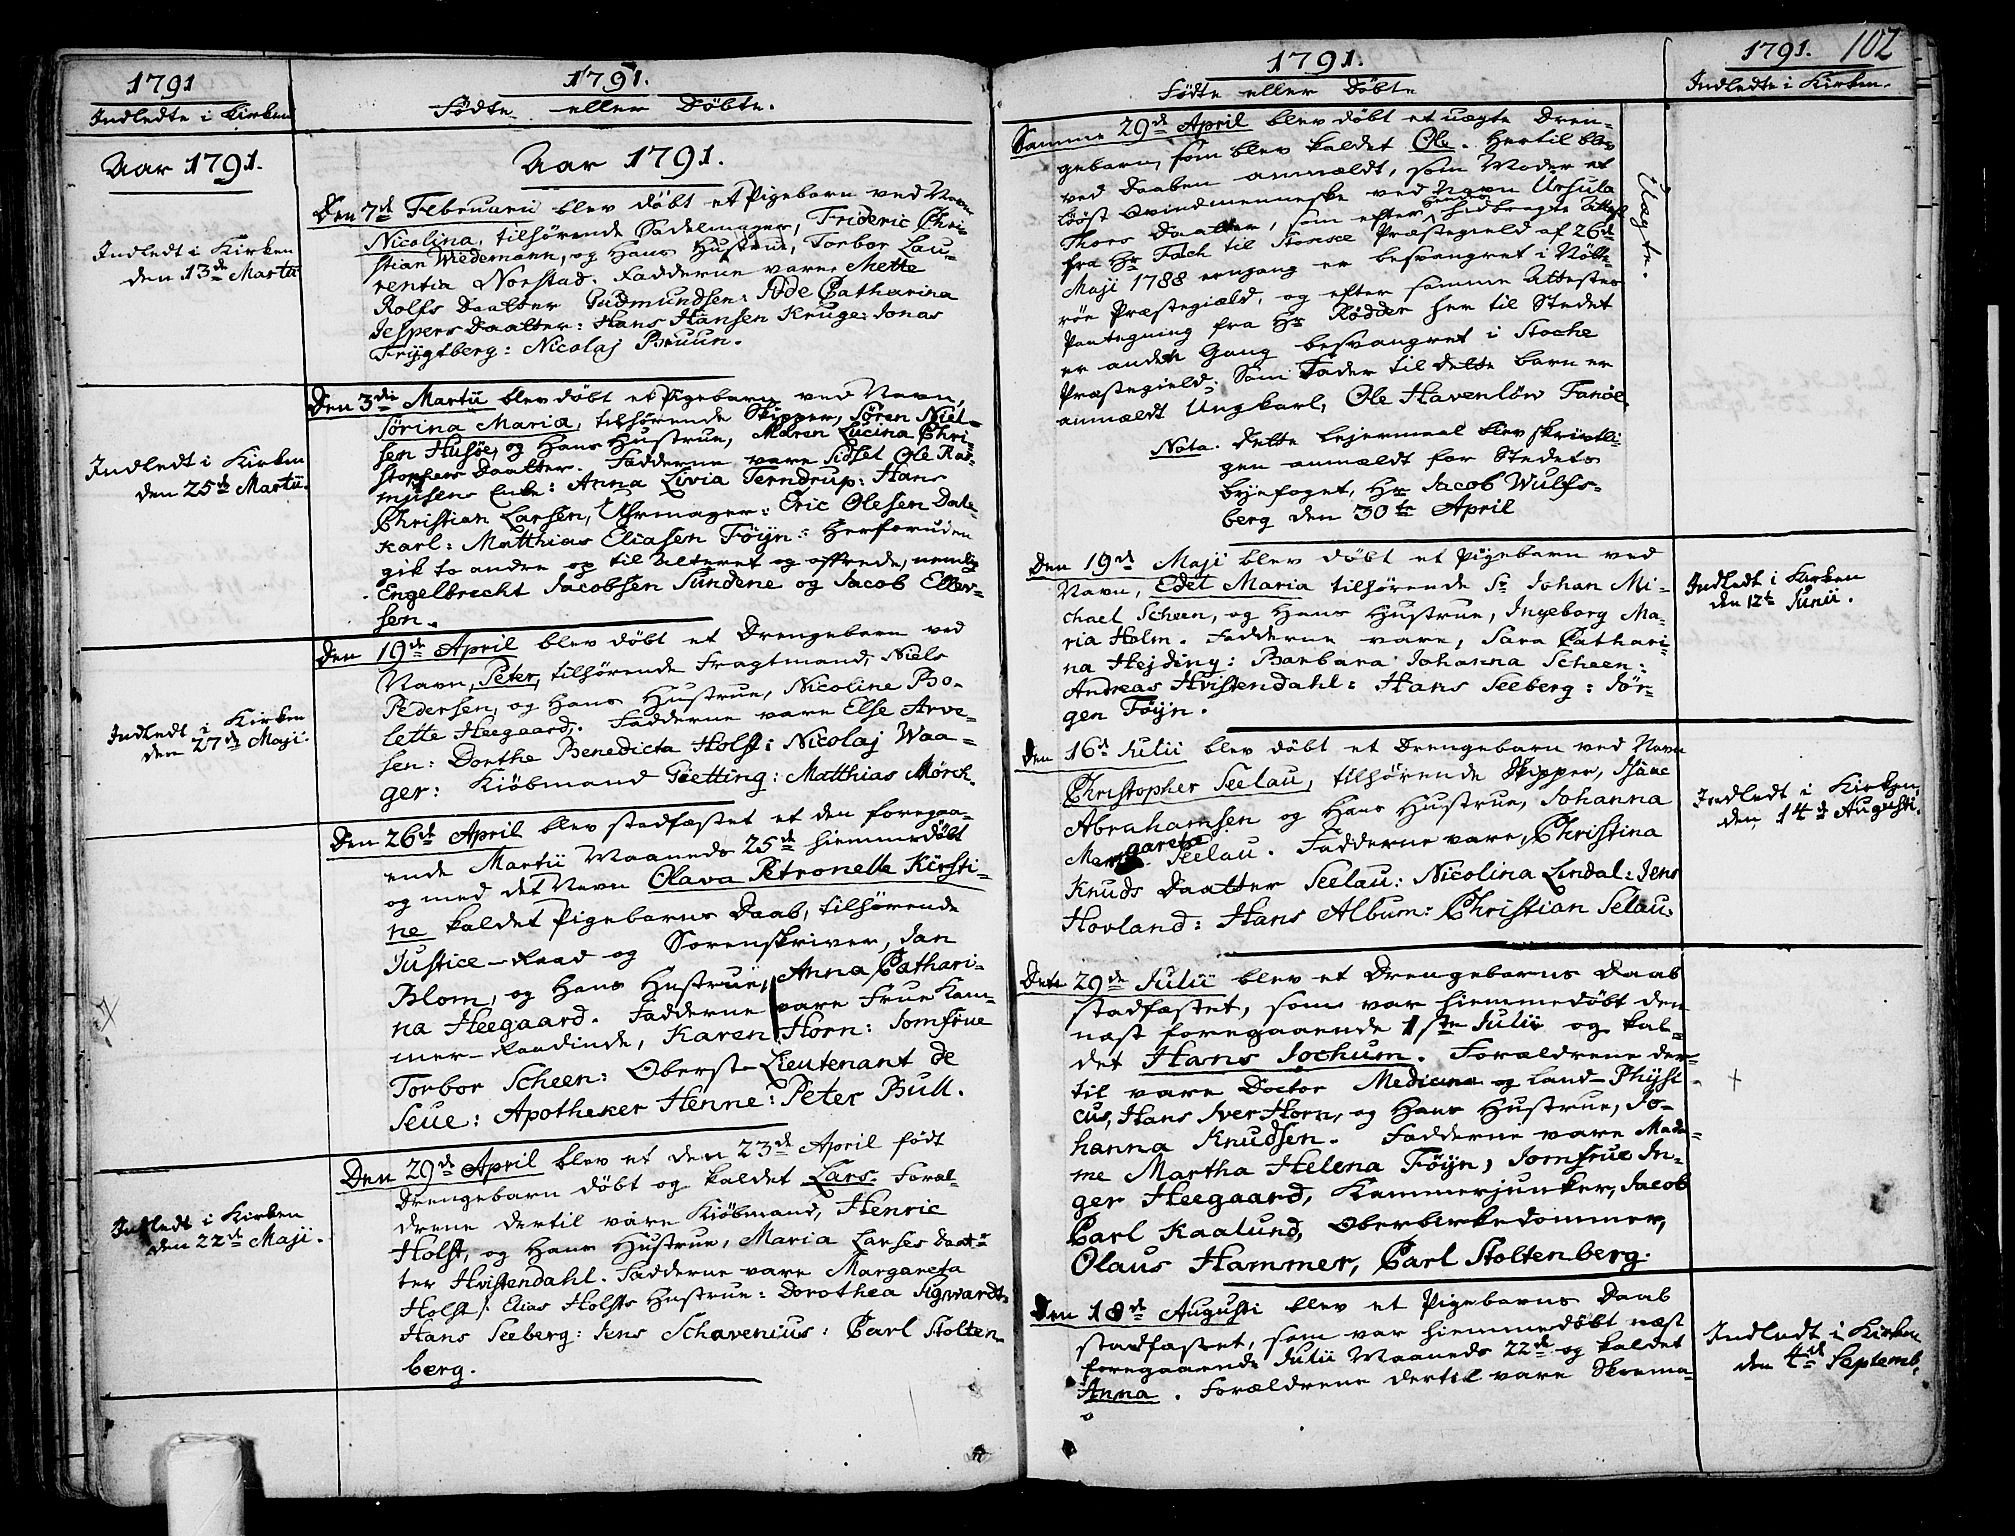 1791
Indledte i Kirken
Aar 1791.
Indledt i Kirken
den 13de Martii
Indledt i Kirken
den 25de Martii.
Indledt i Kirken
den 27de Maji.
Indledt i Kirken
den 22de Maji.
1791.
Fødte eller Døbte.
Aar 1791.
Den 7de Februarii blev døbt et Pigebarn ved Navn
Nicolina, tilhørende Sadelmager, Frideric Chri-
stian Wiedemann, og Hans Hustrue, Torbor Lau-
rentia Norstad. Fadderne vare Mette
Rolfs Daatter Gudmundsen: Ide Catharina
Jespers Daatter: Hans Hansen Kruge: Jonas
Frygtberg: Nicolaj Bruun.
Den 3die Martii blev døbt et Pigebarn ved Navn,
Sørina Maria, tilhørende Skipper, Søren Niel-
sen Husøe, og Hans Hustrue, Maren Lucina Chri-
stophers Daatter. Fadderne vare Sidsel Ole Ras-
mysens Enke: Anna Livia Terndrup: Hans
Christian Larsen, Uhrmager: Eric Olesen Dale-
karl: Matthias Eliasen Føyn: Herforuden
gik to andre op til Alteret og offrede, nemlig
Engelbrecht Jacobsen Sundene og Jacob Ellev-
sen.
Den 19de April blev døbt et Drengebarn ved
Navn, Peter, tilhørende Fragtmand, Niels
Pedersen, og Hans Hustrue, Nicoline Bo-
lette Heegaard. Fadderne vare Else Arve-
sen: Dorthe Benedicta Holst: Nicolaj Waa-
ger: Kiøbmand Gietting: Matthias Mørch.
Den 26de April blev stadfæstet et den foregaa-
ende Martii Maaneds 25de hiemmedøbt
og med det Navn Olava Petronelle Kirsti-
ne kaldet Pigebarns Daab, tilhørende
Justice-Raad og Sorenskriver, Jan
Blom, og Hans Hustrue, Anna Cathari-
na Heegaard. Fadderne vare Frue Kam-
mer-Raadinde, Karen Horn: Jomfrue
Torbor Scheen: Oberst-Lieutenant de
Seue: Apotheker Henne: Peter Bull.
Den 29de April blev et den 23de April født
Drengebarn døbt og kaldet Lars. Foræl-
drene dertil vare Kiøbmand, Henric
Holst, og Hans Hustrue, Maria Larses Daat-
ter Hvistendahl. Fadderne vare Margareta
Holst / Elias Holsts Hustrue: Dorothea Sigwardt:
Hans Seeberg: Jens Schavenius: Carl Stolten
berg.
1791.
Fødte eller Døbte
Samme 29de April blev døbt et uægte Dren-
gebarn, som blev kaldet Ole. Hertil blev
ved Daaben anmældt, som Moder et
løøst Qvindmenneske ved Navn Ursula
Thors Daatter, som efter Hendes hidbragte Attest
fra Hr Fach til Præstegield af 26de
Maji 1788 eengang er besvangret i Nøtte-
røe Præstegiæld, og efter samme Attestes
Paategning fra Hr Rødder her til Stedet
er anden Gang besvangret i Stoche
Præstegield. Som Fader til dette Barn er
anmældt Ungkarl, Ole Havenløw Fanøe.
Nota. Dette Lejermaal blev skrivtli-
gen anmældt for Stedets
Byefoget, Hr Jacob Wulfs-
berg den 30te April
Uægte.
Den 19de Maji blev døbt et Pigebarn ved
Navn, Edel Maria tilhørende Sr Johan Mi-
chael Scheen, og Hans Hustrue, Ingeborg Ma-
ria Holm. Fadderne vare, Sara Cathari-
na Hejding: Barbara Johanna Scheen:
Andreas Hvistendahl: Hans Seeberg: Jør-
gen Føyn.
Den 16de Julii blev døbt et Drengebarn ved Navn
Christopher Seelau, tilhørende Skipper, Isaac
Abrahamsen og Hans Hustrue, Johanna
Margarete Seelau. Fadderne vare, Christina
Knuds Daatter Seelau: Nicolina Lindal: Jens
Hovland: Hans Album: Christian Selau.
Den 29de Julii blev et Drengebarns Daab
stadfæstet, som var hiemmedøbt den
næst foregaaende 1ste Julii og kal-
det Hans Jochum. Forældrene der-
til vare Doctor Medicinæ og Land-Physi-
cus, Hans Iver Horn, og Hans Hustrue, Jo-
hanna Knudsen. Fadderne vare Mada-
me Martha Helena Føyn, Jomfrue In-
ger Heegaard, Kammerjunker, Jacob
Carl Kaalund, Oberbirkedommer,
Olaus Hammer, Carl Stoltenberg.
Den 18de Augusti blev et Pigebarns Daab
stadfæstet, som var hiemmedøbt næst
foregaaende Julii Maaneds 22de og kaldet
Anna. Forældrene dertil vare Skoema-
1791. 102
Indledte i Kirken.
Indledt i Kirken
den 12te Junii.
Indledt i Kirken
den 14de Augusti.
+
Indledt i Kirken
den 4de Septemb.